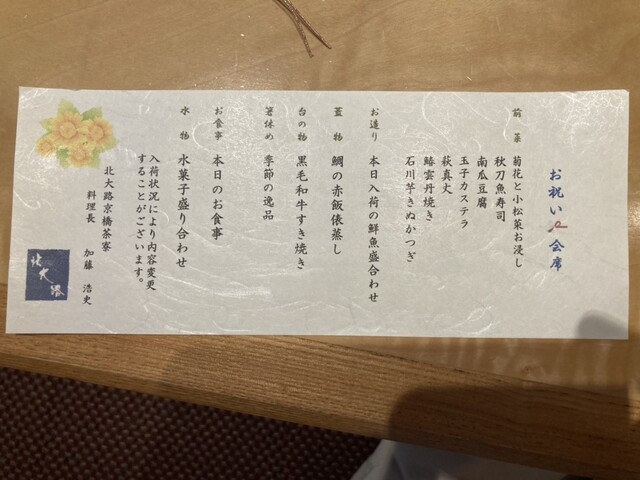 お祝い会席
前菜 菊花と小松菜お浸し
秋刀魚寿司
南瓜豆腐
玉子カステラ
萩真丈
鰆雲丹焼き
石川芋きぬかつぎ
お造り 本日入荷の鮮魚盛合わせ
蓋物 鯛の赤飯俵蒸し
台の物 黒毛和牛すき焼き
箸休め 季節の逸品
お食事 本日のお食事
水物 水菓子盛り合わせ
入荷状況により内容変更
することがございます。
北大路京橋茶寮
料理長 加藤 浩史
北大路